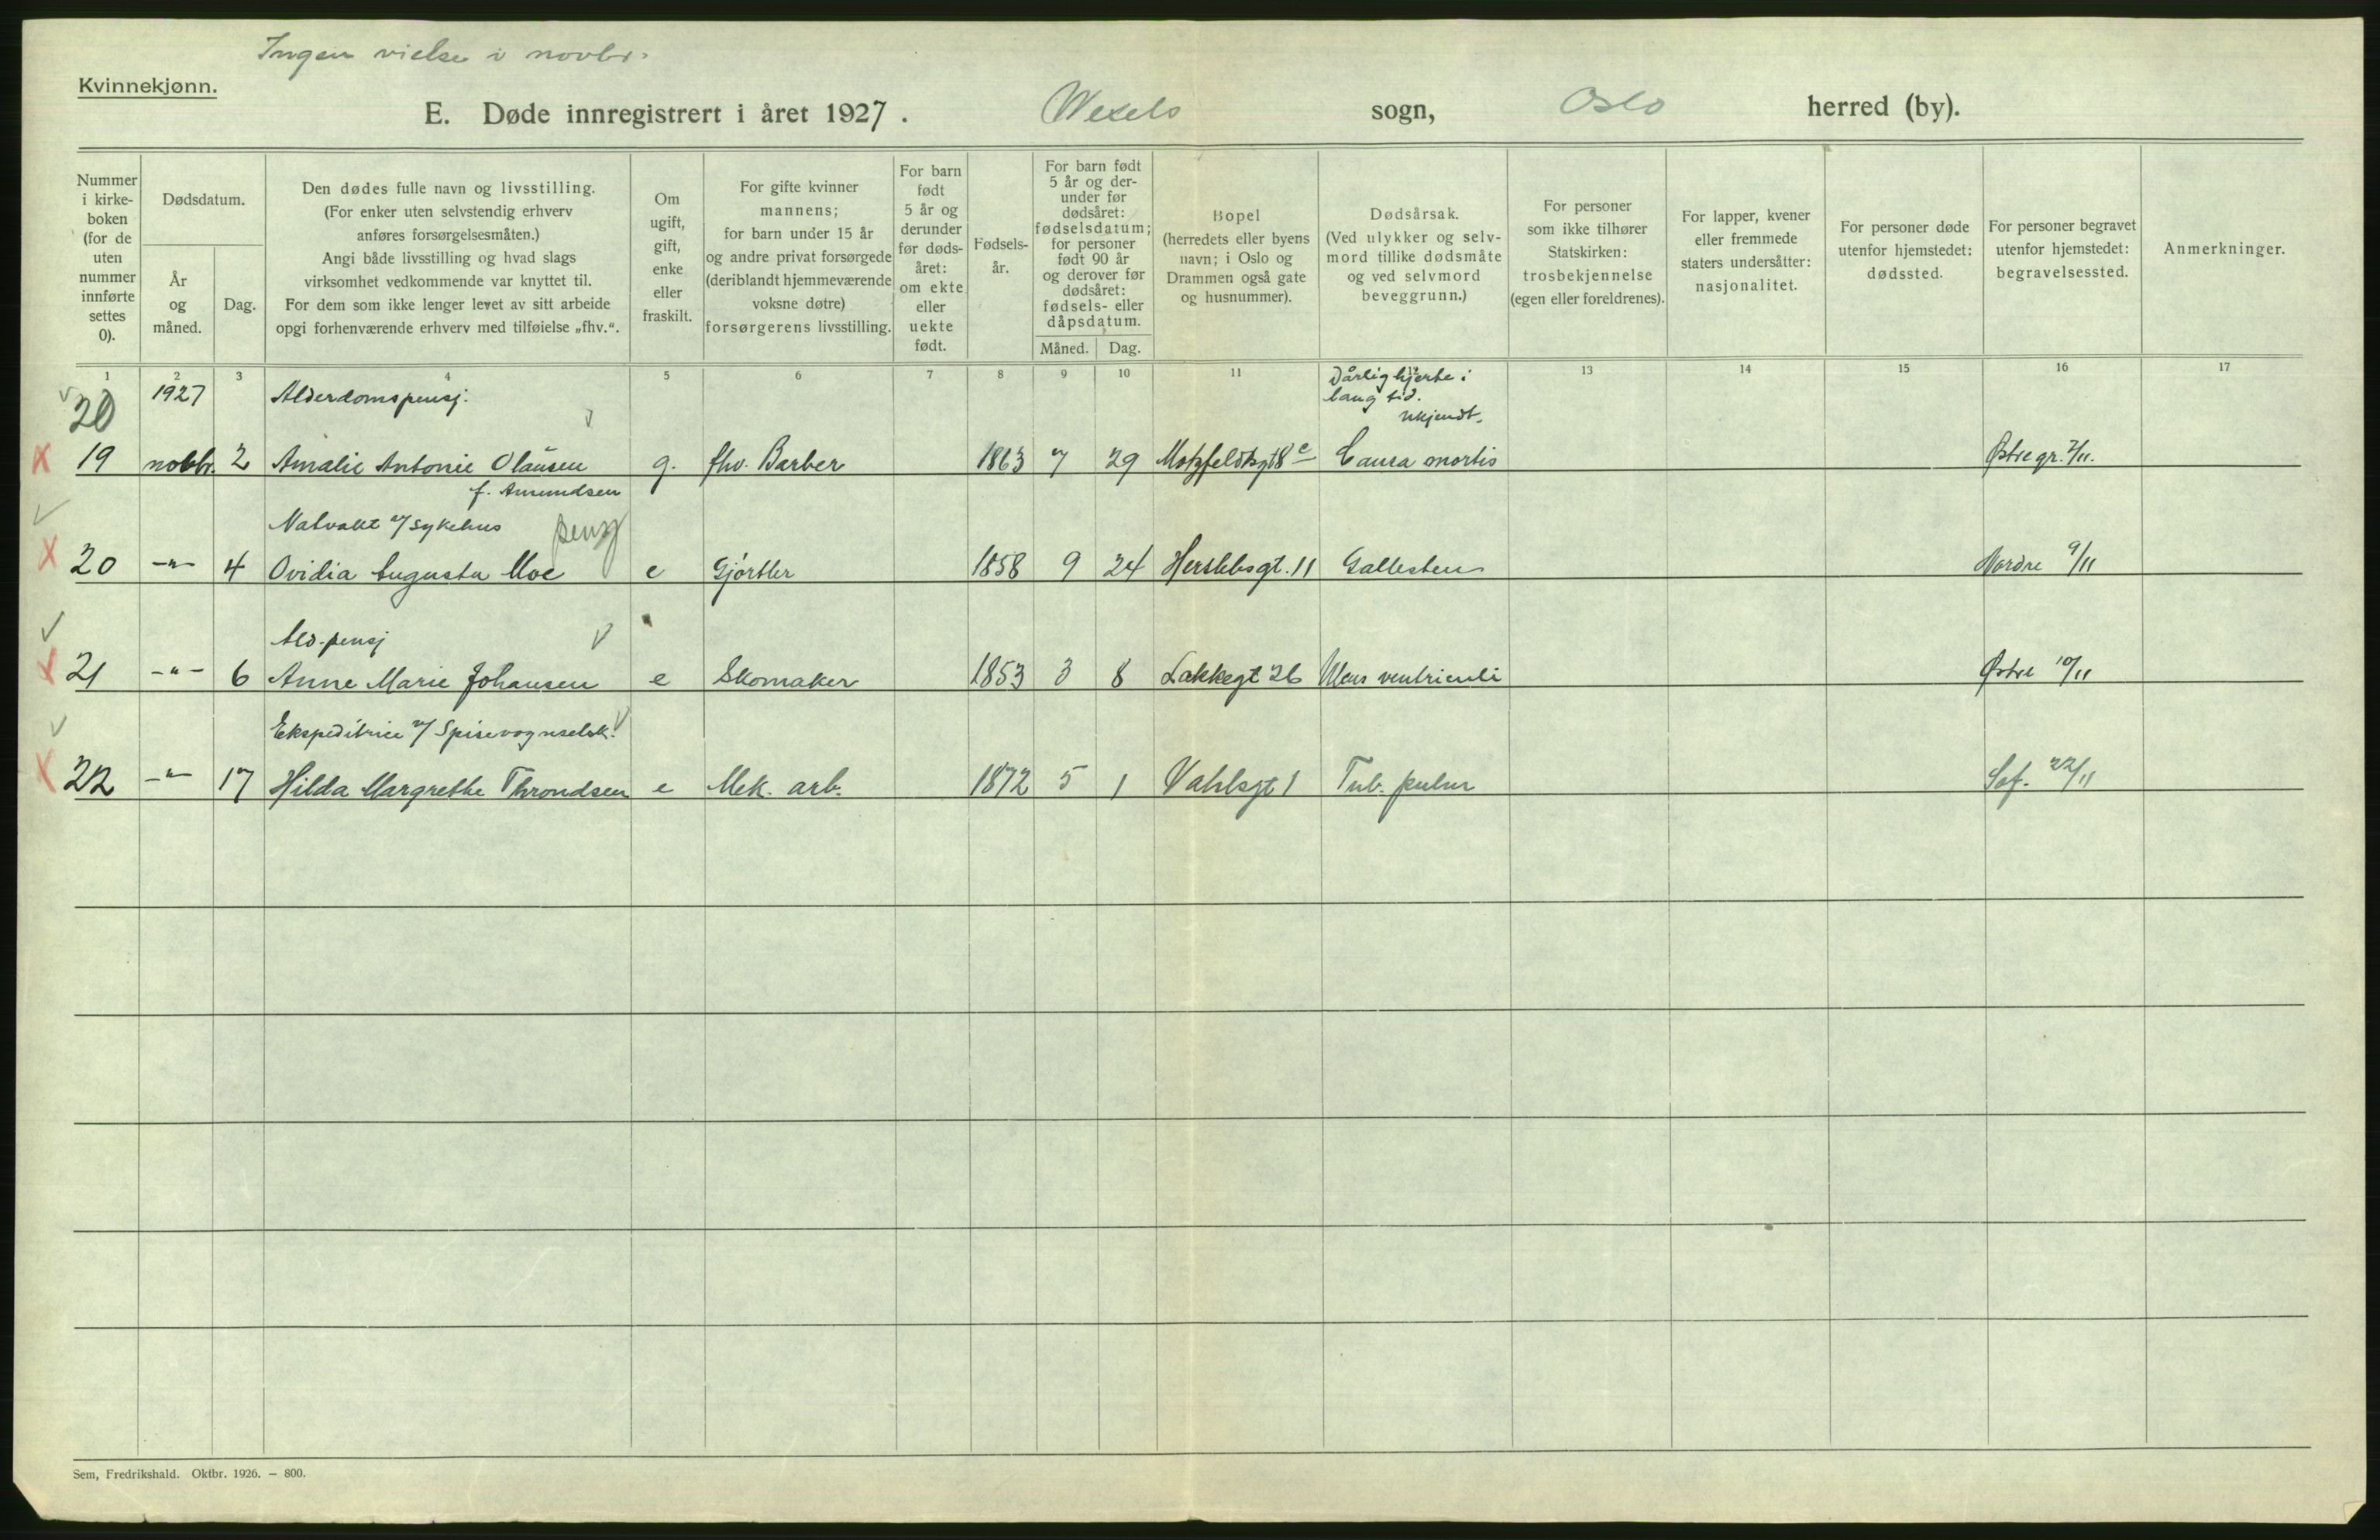 Ingen vielse i novbr.
Kvinnekjønn.
E. Døde innregistrert i året 1927. Wexels sogn, Oslo herred (by).
Nummer i kirkeboken (for de uten nummer innførte settes 0).
Dødsdatum.
År og måned.
Dag.
Den dødes fulle navn og livsstilling.
(For enker uten selvstendig erhverv
anføres forsørgelsesmåten.)
Angi både livsstilling og hvad slags
virksomhet vedkommende var knyttet til.
For dem som ikke lenger levet av sitt arbeide
opgi forhenværende erhverv med tilføielse „fhv.“.
Om
ugift,
gift,
enke
eller
fraskilt.
For gifte kvinner
mannens;
for barn under 15 år
og andre privat forsørgede
(deriblandt hjemmeværende
voksne døtre)
forsørgerens livsstilling.
For barn
født
5 år og
derunder
før døds-
året:
om ekte
eller
uekte
født.
Fødsels-
år.
For barn født
5 år og der-
under før
dødsåret:
fødselsdatum;
for personer
født 90 år
og derover før
dødsåret:
fødsels- eller
dåpsdatum.
Måned. Dag.
Bopel
(herredets eller byens
navn; i Oslo og
Drammen også gate
og husnummer).
Dødsårsak.
(Ved ulykker og selv-
mord tillike dødsmåte
og ved selvmord
beveggrunn.)
For personer
som ikke tilhører
Statskirken:
trosbekjennelse
(egen eller foreldrenes).
For lapper, kvener
eller fremmede
staters undersåtter:
nasjonalitet.
For personer døde
utenfor hjemstedet:
dødssted.
For personer begravet
utenfor hjemstedet:
begravelsessted.
Anmerkninger.
1 2 3 4 5 6 7 8 9 10 11 12 13 14 15 16 17
20 1927 Alderdomspensj. Dårlig hjerte i
lang tid.
ukjendt.
19 novbr. 2 Amalie Antonie Olausen g. fhv. Barber 1863 7 29 Motzfeldtsgt 8c Causa mortis Østre gr. 7/11.
f. Amundsen
Natvakt v/ sykehus pensj
20 -"- 4 Ovidia Augusta Moe e Gjørtler 1858 9 24 Herslebsgt. 11 Gallesten Nordre 9/11
Ald. pensj
21 -"- 6 Anne Marie Johansen e Skomaker 1853 3 8 Lakkegt 26 Ulcus ventriculi Østre 10/11
Ekspeditrice v/ Spisevognselsk.
22 -"- 17 Hilda Margrethe Throndsen e Mek. arb. 1872 5 1 Vahlsgt 1 Tub. pulm Sof. 22/11
Sem, Fredrikshald. Oktbr. 1926. — 800.